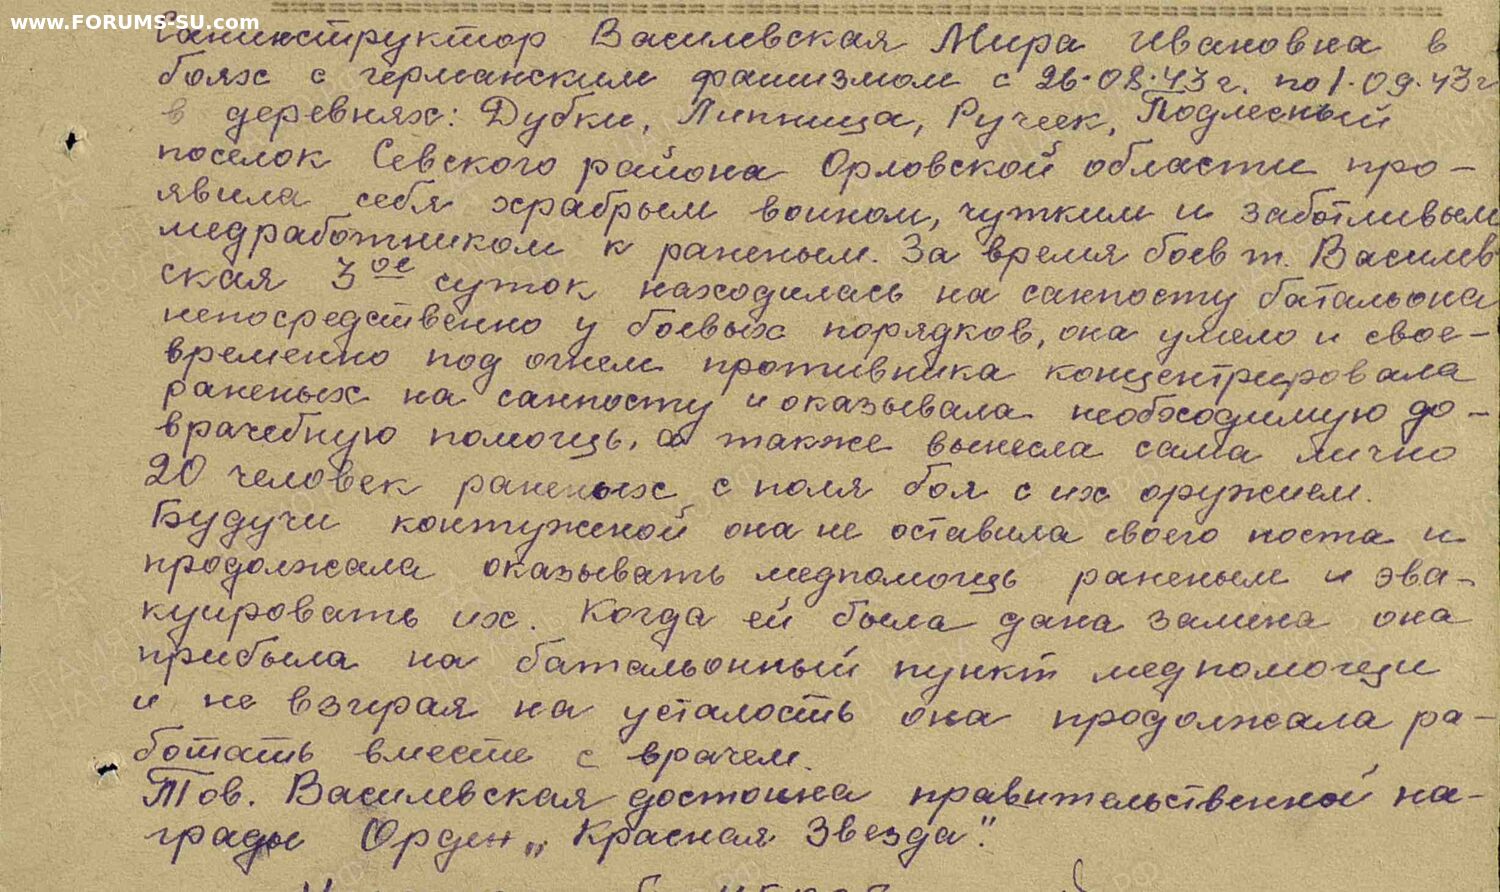 www.FORUMS-SU.com
Санинструктор Василевская Мира Ивановна в
боях с германским фашизмом с 26.08.43г. по 1.09.43г
в деревнях: Дубки, Липница, Ручеек, Подлесный
поселок Севского района Орловской области про-
явила себя храбрым воином, чутким и заботливым
медработником к раненым. За время боев т. Василев
ская 3ое суток находилась на санпосту батальона
непосредственно у боевых порядков, она умело и свое-
временно под огнем противника концентрировала
раненых на санпосту и оказывала необходимую до-
врачебную помощь, а также вынесла сама лично
20 человек раненых с поля боя с их оружием.
Будучи контуженой она не оставила своего поста и
продолжала оказывать медпомощь раненым и эва-
куировать их. Когда ей была дана замена она
прибыла на батальонный пункт медпомощи
и не взирая на усталость она продолжала ра-
ботать вместе с врачем.
Тов. Василевская достойна правительственной на-
грады Орден „Красная Звезда".